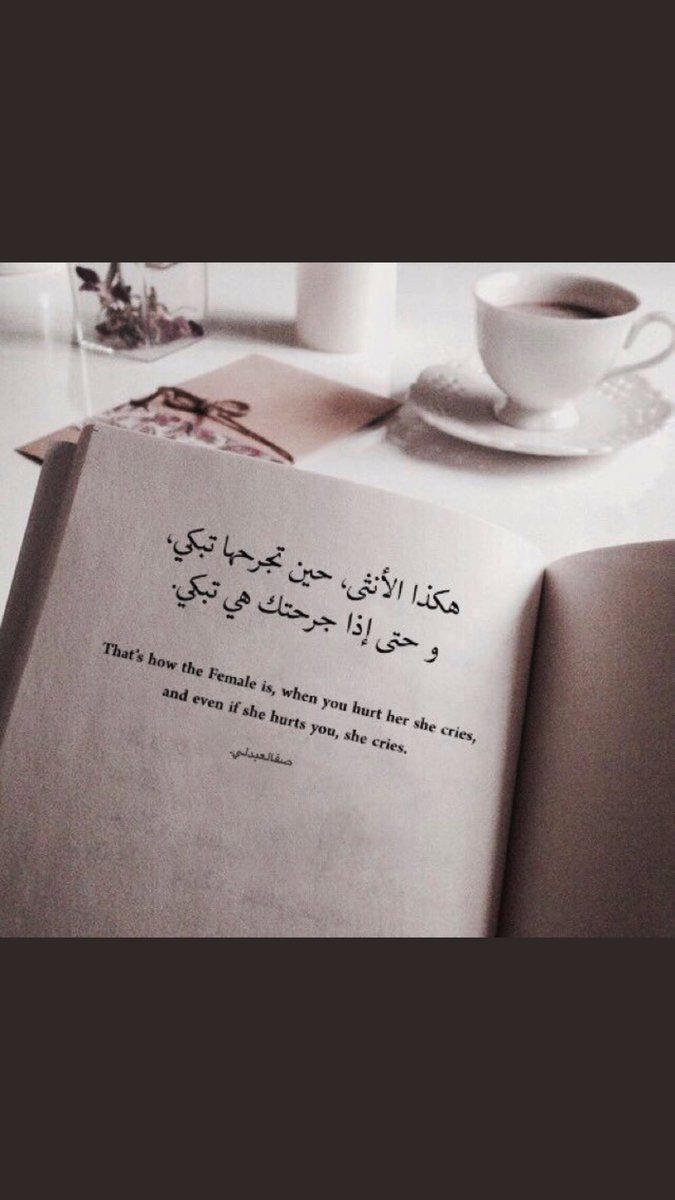 هكذا الأنثى، حين تجرحها تبكي،
و حتى إذا جرحتك هي تبكي.
That's how the Female is, when you hurt her she cries,
and even if she hurts you, she cries.
صفالعبدلي.